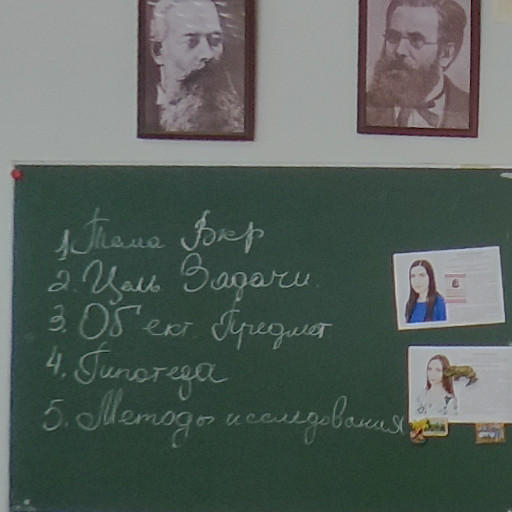 1. Тема Вкр
2. Цель Задачи.
3. Объект. Предмет
4. Гипотеза
5. Методы исследования